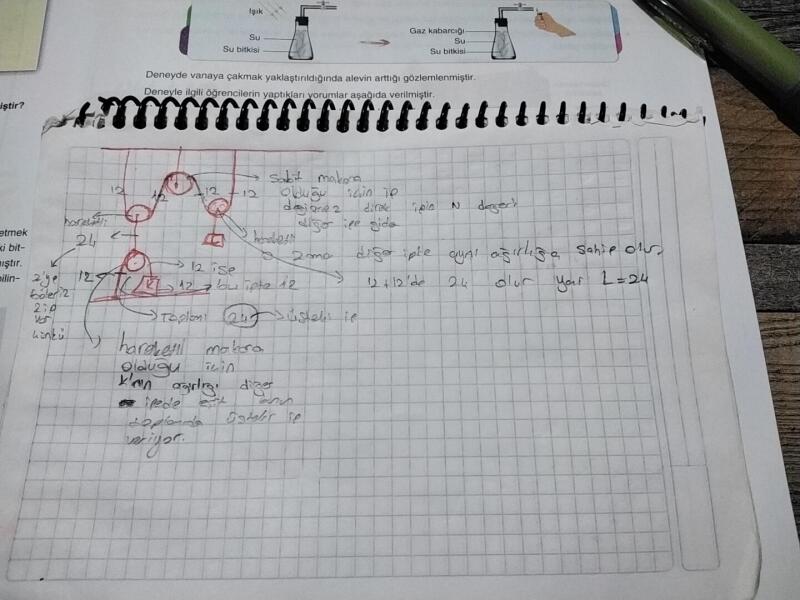 Işık
Su
Su bitkisi
Gaz kabarcığı
Su
Su bitkisi
Deneyde vanaya çakmak yaklaştırıldığında alevin arttığı gözlemlenmiştir.
Deneyle ilgili öğrencilerin yaptıkları yorumlar aşağıda verilmiştir.
iştir?
etmek
ki bit-
mıştır.
bilin-
12
12
12
12
sabit makara
olduğu için ip
değişmez direk ipin N değeri
diğer ipe gider
hareketli
24
hareketli
o zama diğer iple aynı ağırlığa sahip olur
12 12 ise
12 bu ipte 12
12+12'de 24 olur yani L=24
2'ye
böleriz
2 ip
var
çünkü
Toplamı 24 üstteki ip
hareketli makara
olduğu için
K'nın ağırlığı diğer
ipede
toplamıda üstteki ip
veriyor.